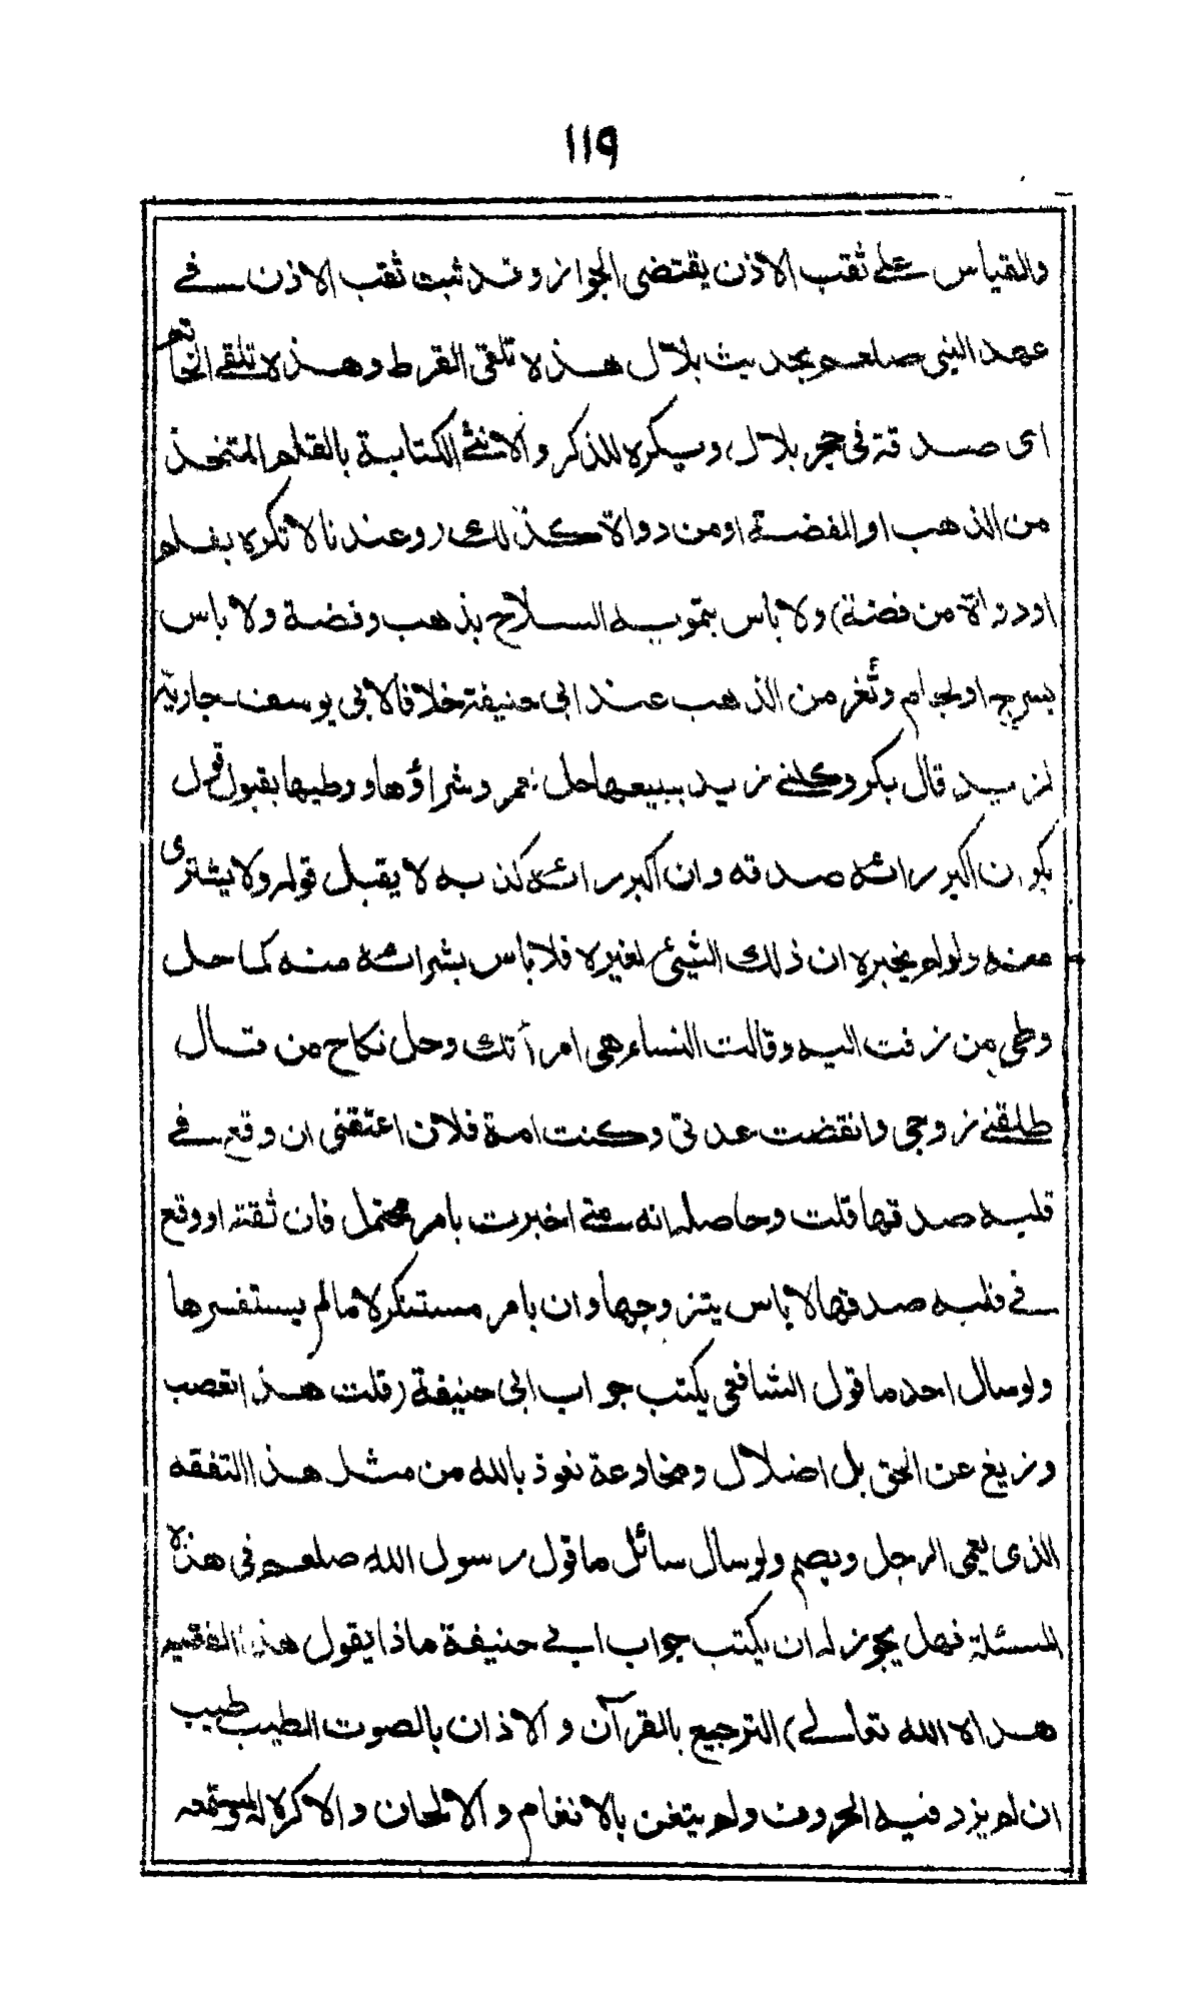 ١١٩
والقياس على ثقب الاذن يقتضى الجواز وقد ثبت ثقب الاذن فے
عهد النبى صلعم بحديث بلال هذه تلقى القرط وهذه تلقے الخاتم
اى صدقة فى حجر بلال، ويكره للذكر والانثے الكتابة بالقلم المتخذ
من الذهب او الفضة او من دواة كذلك (وعندنا لا تكره بقلم
او دواة من فضة) ولا باس بتمويه السلاح بذهب وفضة ولا باس
بسرج او لجام وثغر من الذهب عند ابى حنيفة خلافا لابى يوسف جارية
لزيد قال بكر وكلنے زيد ببيعها حل لعمر وشراؤها ووطيها بقبول قول
بكر ان اكبر رائه صدقه وان اكبر رائه كذبه لا يقبل قوله ولا يشترى
منه ولو لم يخبره ان ذلك الشئ لغيره فلا باس بشرائه منه كما حل
وطى من زفت اليه وقالت النساء هى امرأتك وحل نكاح من قال
طلقنے زوجى وانقضت عدتى وكنت امة فلان اعتقنى ان وقع فے
قلبه صدقها قلت وحاصله انه متے اخبرت بامر محتمل فان ثقة او وقع
فے قلبه صدقها لا باس بتزوجها وان بامر مستنكر لا ما لم يستفسرها
ولو سال احد ما قول الشافعى يكتب جواب ابى حنيفة (قلت هذا تعصب
وزيغ عن الحق بل اضلال ومخادعة نعوذ بالله من مثل هذا التفقه
الذى يعمى الرجل ويصم ولو سال سائل ما قول رسول الله صلعم فى هذه
المسئلة فهل يجوز له ان يكتب جواب ابے حنيفة ماذا يقول هذا الفقيه
هداه الله تعالے) الترجيع بالقرآن والاذان بالصوت الطيب طيب
ان لم يزد فيه الحروف ولم يتغن بالانغام والالحان والا كره له ولمستمعه